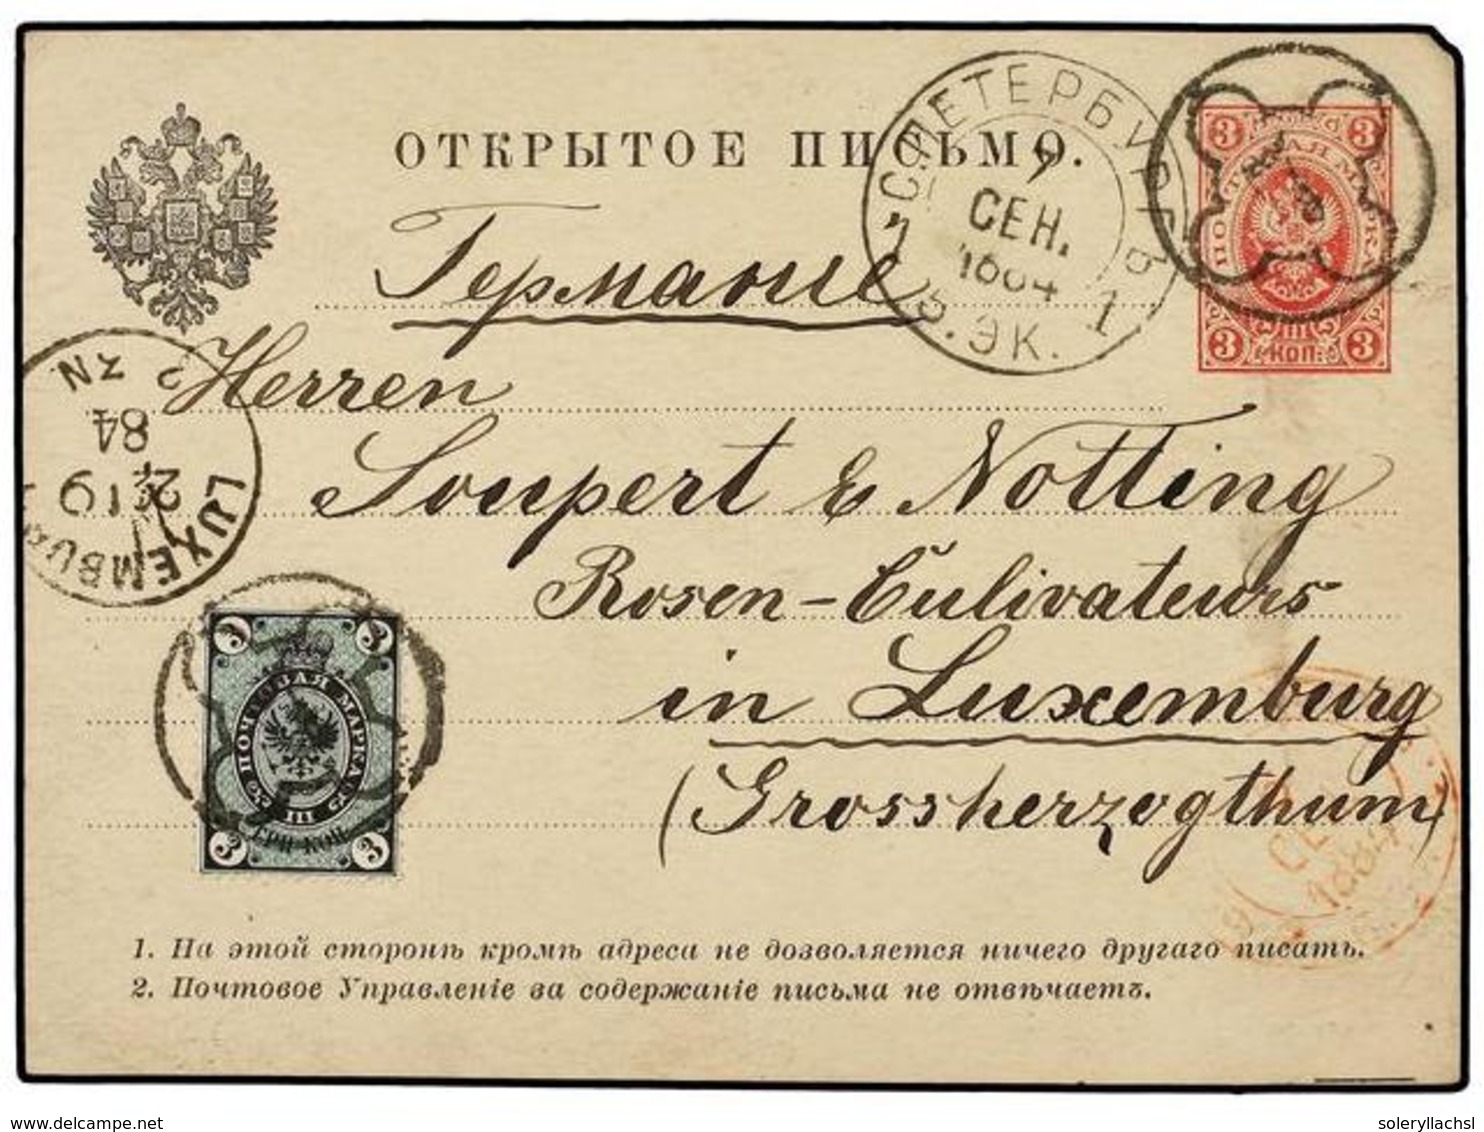 ОТКРЫТОЕ ПИСЬМО.
С.ПЕТЕРБУРГЪ 1
7
СЕН.
1884
5.ЭК.
3 3
ПОЧТОВАЯ МАРКА
III
3 КОП. 3
Германіе
Herren
Soupert & Notting
Rosen-Culivateurs
in Luxemburg
(Grossherzogthum)
LUXEMBURG
19
84
2-3N
3 3
ПОЧТОВАЯ МАРКА
III
3 ТРИ КОП. 3
СЕН
1884
1. На этой сторонѣ кромѣ адреса не дозволяется ничего другаго писать.
2. Почтовое Управленіе за содержаніе письма не отвѣчаетъ.
www.delcampe.net
soleryllachsl